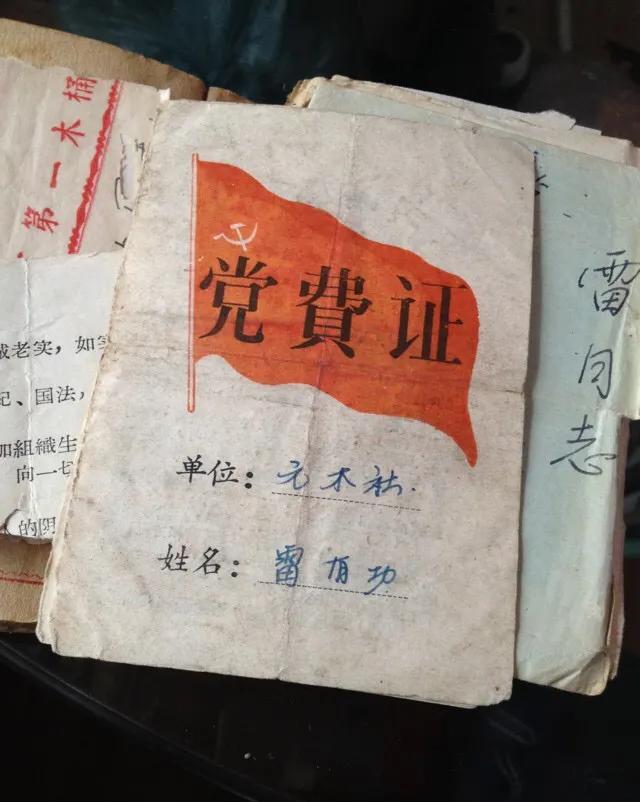 第一木桶
诚老实,如实
纪、国法,
加組織生
向一切
的阴
党費证
单位:元木社.
姓名:雷有功
雷同志